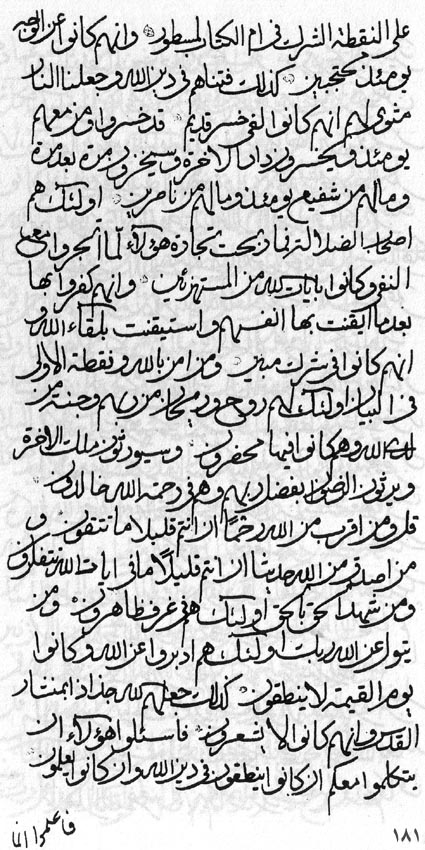 على النقطة الشرك فى ام الكتاب لمسطور وانهم كانوا عن الوجه
يومئذ محتجبين كذلك فتناهم فى دين الله وجعلنا النار
مثوى لهم انهم كانوا لفى خسر قديم قد خسروا ومن معهم
يومئذ ويخسرون دار الاخرة وسيخزون مرة بعد مرة
وما لهم من شفيع يومئذ وما لهم من ناصرين اولئك هم
اصحاب الضلالة فما ربحت تجارة هؤلاء لما اتجروا مع
النفى وكانوا بايات الله من المستهزئين وانهم كفروا بها
بعد ما ايقنت بها انفسهم واستيقنت بلقاء الله و
انهم كانوا فى شرك مبين ومن امن بالله ونقطة الاولى
فى البيان اولئك لهم روح وريحان من ربهم وجنة من
الله وهم كانوا فيها محضرون وسيورثون ملك الاخرة
ويرثون الرضوان بفضل ربهم وهم فى رحمة الله خالدون
قل ومن اقرب من الله رحما ان انتم قليلا ما تتقون و
من اصدق من الله حديثا ان انتم قليلا ما فى ايات الله تتفكرون
ومن شهد الحق بالحق اولئك هم فى غرف ظاهرون ومن
يتول عن الله ربك اولئك هم ادبروا عن الله وكانوا
يوم القيمة لا ينطقون كذلك جعلهم الله جذاذا بمنتار
القدس وانهم كانوا لا يشعرون فاسئلوا هؤلاء ان
يتكلموا معكم ان كانوا ينطقون فى دين الله وان كانوا يعلمون
فاعلموا انا
١٨١